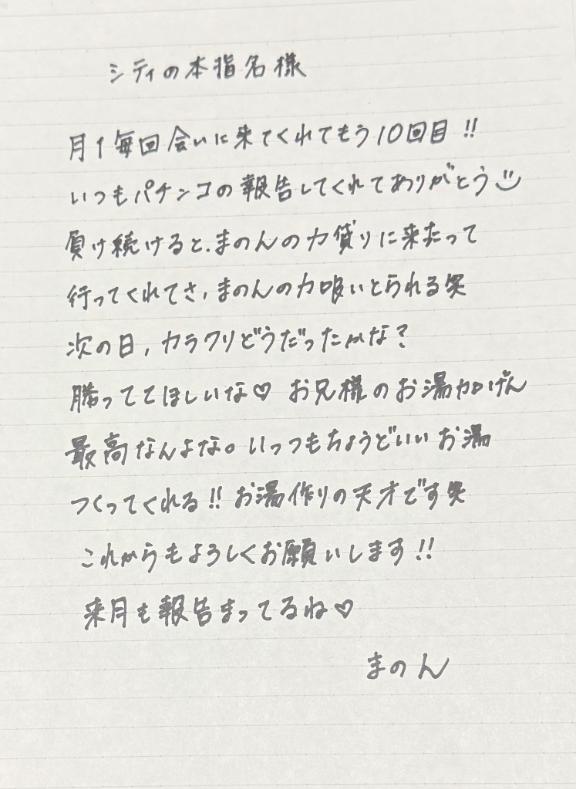 シティの本指名様
月1毎回会いに来てくれてもう10回目!!
いつもパチンコの報告してくれてありがとう
負け続けると、まのんの力貸りに来たって
行ってくれてさ、まのんの力吸いとられる笑
次の日、カラクリどうだったかな?
勝っててほしいな♡ お兄様のお湯加げん
最高なんよな。いっつもちょうどいいお湯
つくってくれる!! お湯作りの天才です笑
これからもよろしくお願いします!!
来月も報告まってるね♡
まのん